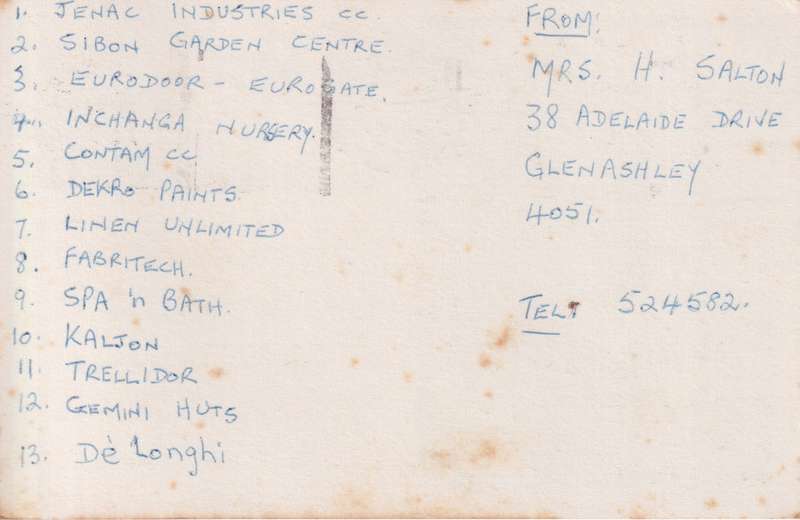 1. JENAC INDUSTRIES CC.
2. SIBON GARDEN CENTRE.
3. EURODOOR - EUROGATE.
4. INCHANGA NURSERY.
5. CONTAM CC
6. DEKRO PAINTS
7. LINEN UNLIMITED
8. FABRITECH.
9. SPA 'n BATH.
10. KALJON
11. TRELLIDOR
12. GEMINI HUTS
13. Dè Longhi
FROM:
MRS. H. SALTON
38 ADELAIDE DRIVE
GLENASHLEY
4051.
TEL: 524582.